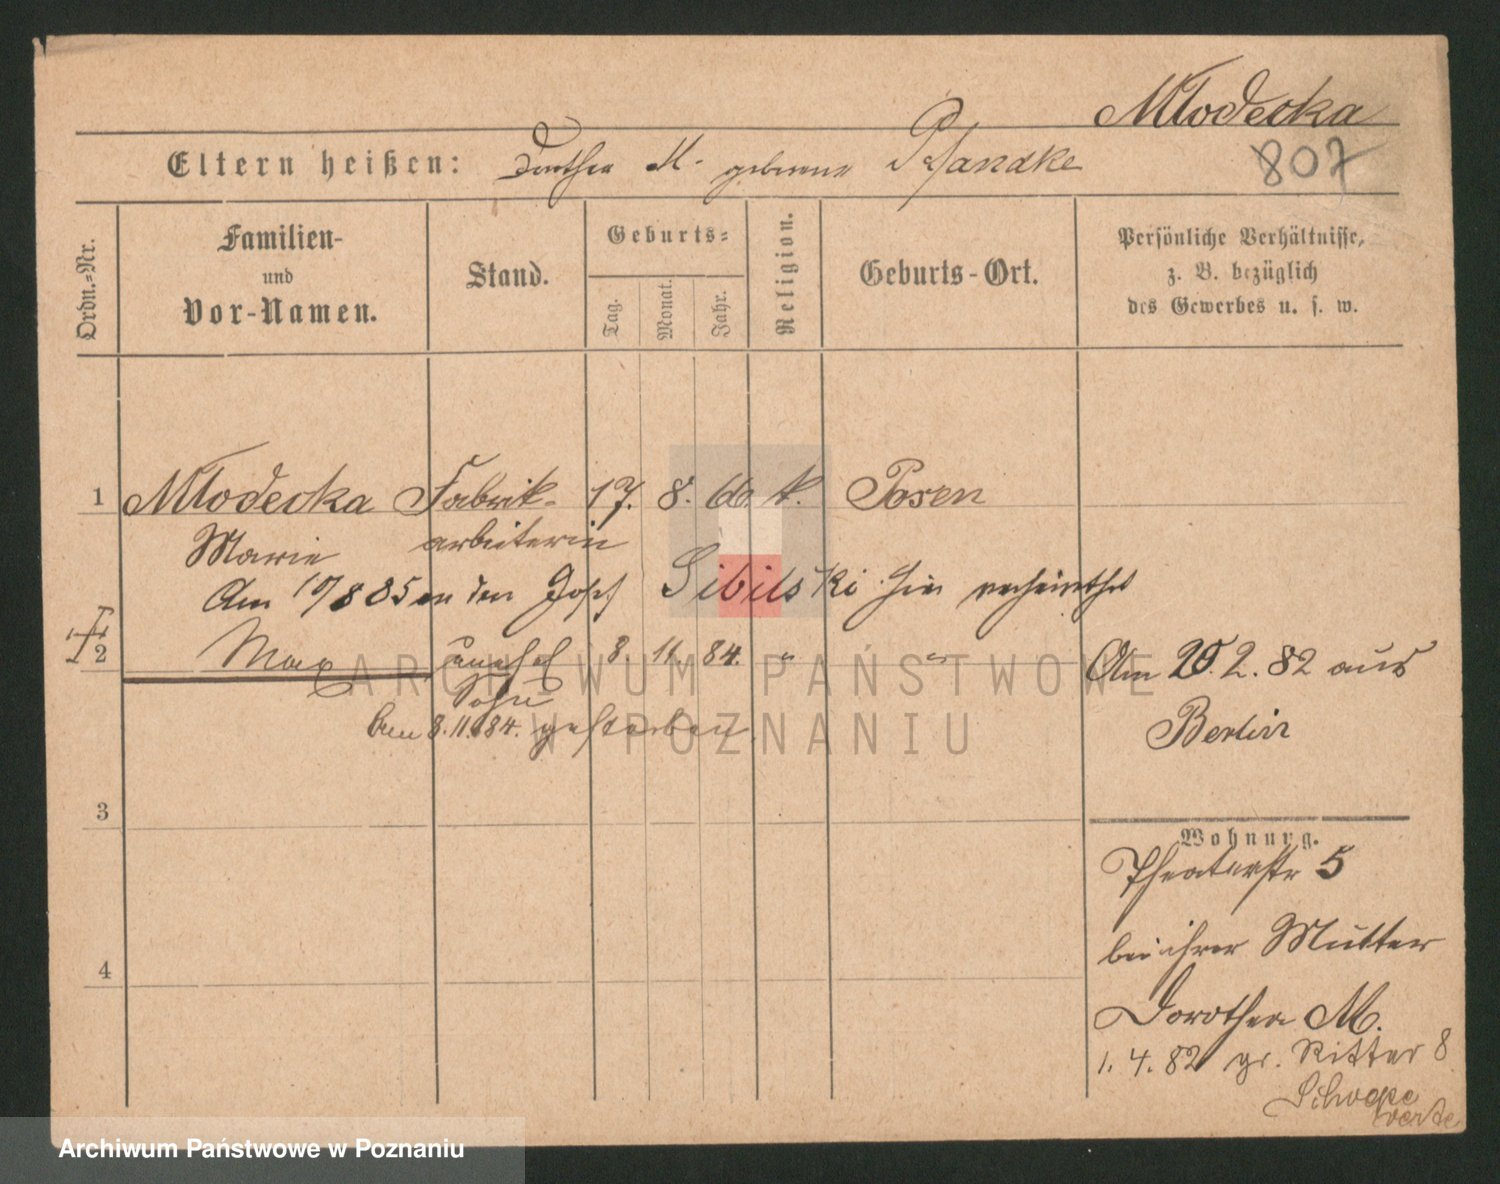 Młodecka
807
Eltern heißen: Dorothea M. geborene Pfandke
Ordn.-Nr.
Familien-
und
Vor-Namen.
Stand.
Geburts-
Tag.
Monat.
Jahr.
Religion.
Geburts-Ort.
Persönliche Verhältnisse,
z. B. bezüglich
des Gewerbes u. s. w.
1 Młodecka Fabrik- 17. 8. 66. k. Posen
Marie arbeiterin
Am 10/8 85 an den Josef Sibilski hier verheirathet
2 Max unehel 8. 11. 84. " "
Sohn
Am 8.11.84. gestorben
Am 20. 2. 82 aus
Berlin
3
Wohnung.
Theaterstr 5
bei ihrer Mutter
4
Dorothea M.
1. 4. 82 gr. Ritter 8
ARCHIWUM PAŃSTWOWE
W POZNANIU
Archiwum Państwowe w Poznaniu